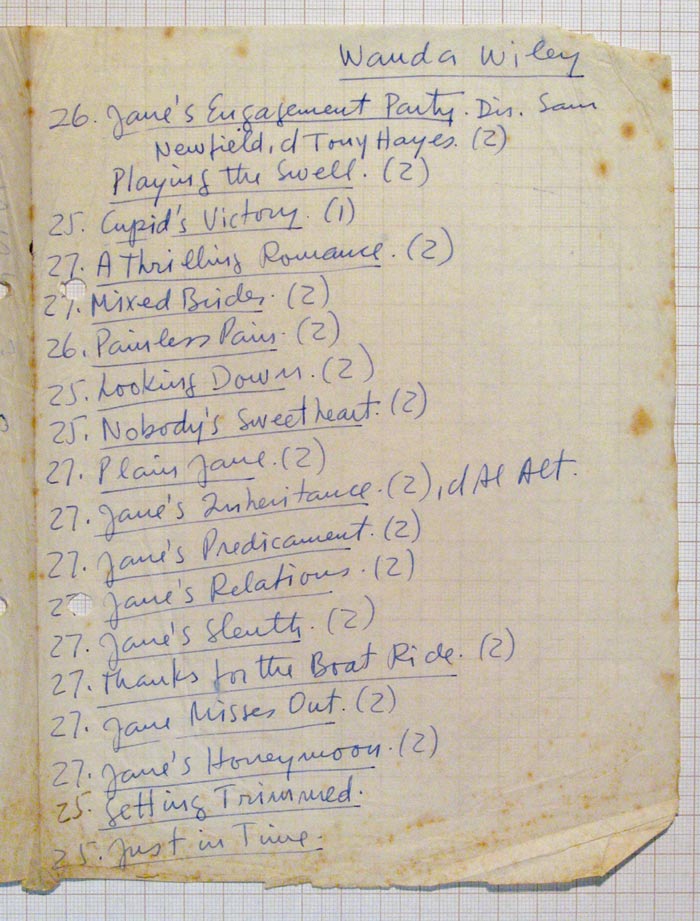 Wanda Wiley
26. Jane's Engagement Party. Dir. Sam
Newfield, d Tony Hayes. (2)
Playing the Swell. (2)
25. Cupid's Victory. (1)
27. A Thrilling Romance. (2)
27. Mixed Brides. (2)
26. Painless Pain. (2)
25. Looking Down. (2)
25. Nobody's Sweetheart. (2)
27. Plain Jane. (2)
27. Jane's Inheritance. (2), d Al Alt.
27. Jane's Predicament. (2)
2 Jane's Relations. (2)
27. Jane's Sleuth. (2)
27. Thanks for the Boat Ride. (2)
27. Jane Misses Out. (2)
27. Jane's Honeymoon. (2)
25. Getting Trimmed.
25. Just in Time.